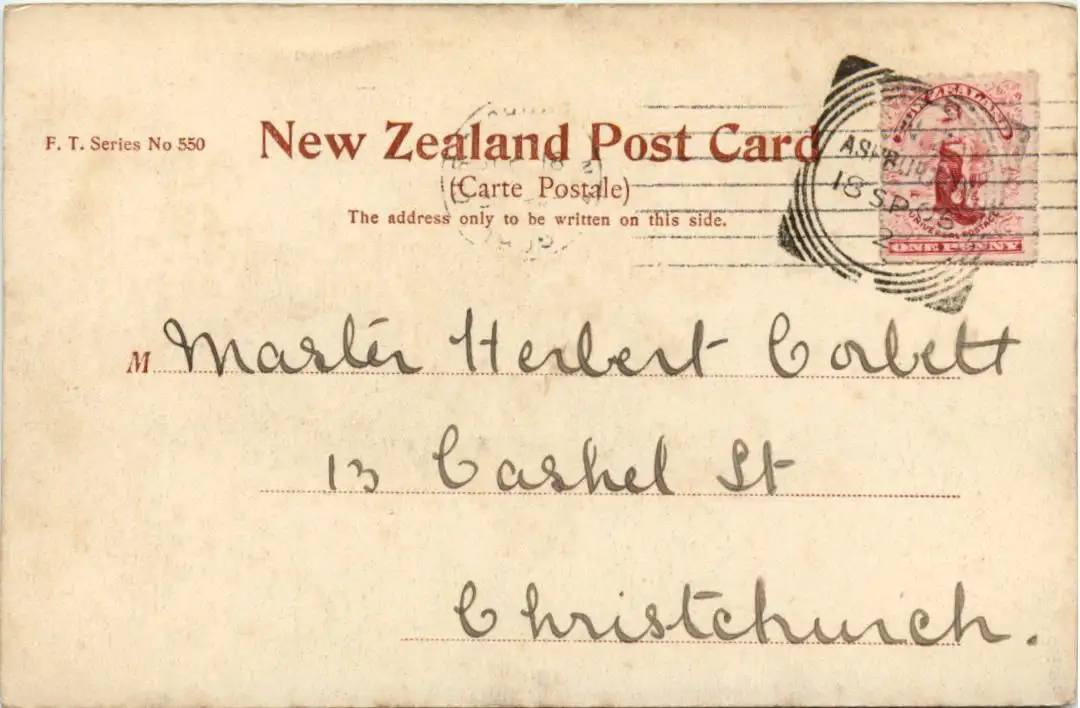 F. T. Series No 550
New Zealand Post Card
(Carte Postale)
The address only to be written on this side.
NEW ZEALAND
UNIVERSAL POSTAGE
ONE PENNY
ASHBURTON
18 SP 05
M Master Herbert Corbett
13 Cashel St
Christchurch.